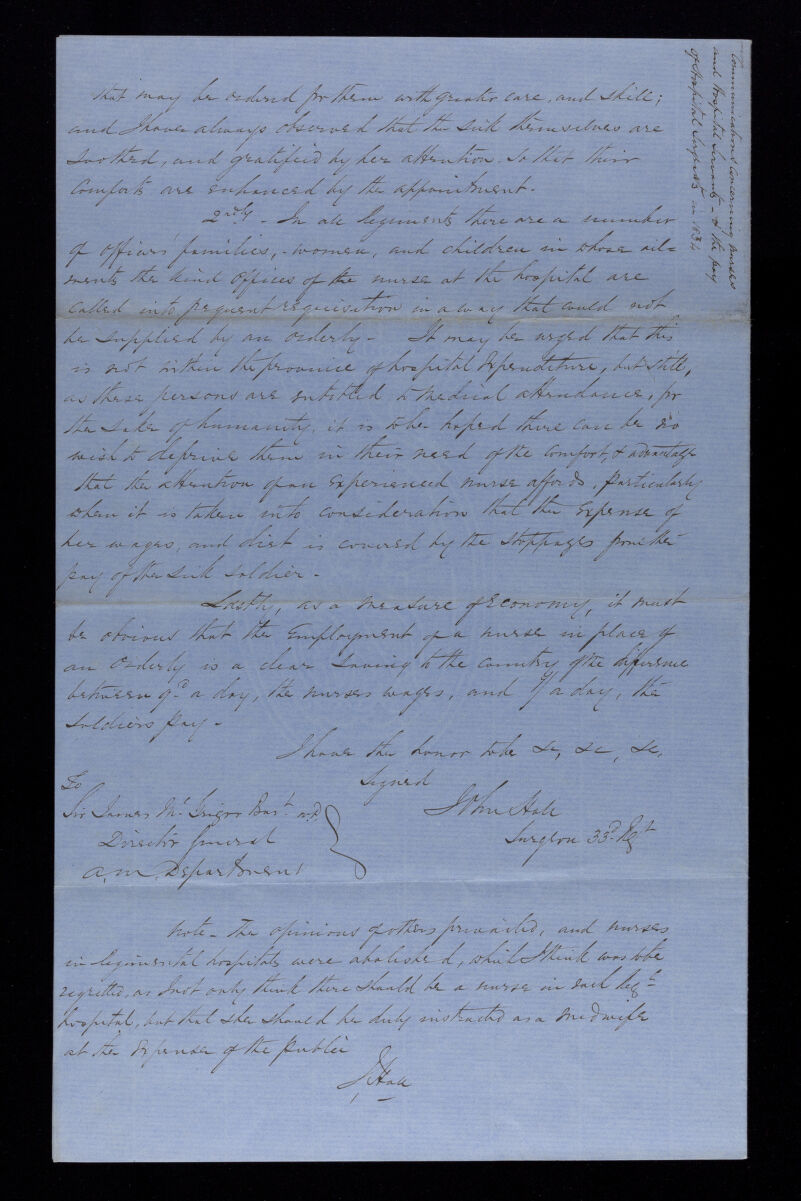 Communications concerning Nurses
and Hospital Servants - & the pay
of Hospital Serjeants in 1834
that may be ordered for them with greater care, and skill;
and I have always observed that the sick themselves are
soothed, and gratified by her attention. So that their
comforts are enhanced by the appointment.
2ndly - In all Regiments there are a number
of officers' families, - women, and children in whose ail=
ments the kind offices of the nurse at the hospital are
called into frequent requisition in a way that could not
be supplied by an orderly - It may be urged that this
is not within the province of hospital Expenditure, but still,
as these persons are entitled to medical attendance, for
the sake of humanity, it is to be hoped there can be no
wish to deprive them in their need of the comfort, & advantage
that the attention of an experienced nurse affords, particularly
when it is taken into consideration that the Expense of
her wages, and diet is covered by the stoppages from the
pay of the sick soldier -
Lastly, as a measure of Economy, it must
be obvious that the Employment of a nurse in place of
an Orderly is a clear saving to the country of the difference
between 9d a day, the nurses wages, and 1/ a day, the
soldiers pay -
I have the honor to be &c, &c, &c,
Signed
To
Sir James McGrigor Bart M.D.
John Hall
Director General
Surgeon 33d Regt
A. M. Department
Note - The opinions of others prevailed, and nurses
in Regimental hospitals were abolished, which I think was to be
regretted, as I not only think there should be a nurse in each Regtl
hospital, but that she should be duly instructed as a Midwife
at the Expense of the Public
J Hall